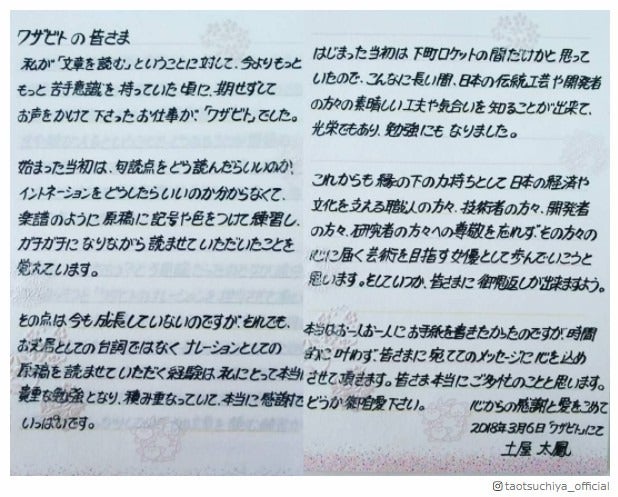 ワザビトの皆さま
私が「文章を読む」ということに対して、今よりもっと
もっと苦手意識を持っていた頃に、期せずして
お声をかけて下さったお仕事が、「ワザビト」でした。
始まった当初は、句読点をどう読んだらいいのか、
イントネーションをどうしたらいいのか分からなくて、
楽譜のように原稿に記号や色をつけて練習し、
ガチガチになりながら読ませていただいたことを
覚えています。
その点は今も成長していないのですが、それでも、
お芝居としての台詞ではなくナレーションとしての
原稿を読ませていただく経験は、私にとって本当に
貴重な勉強となり、積み重なっていて、本当に感謝で
いっぱいです。
はじまった当初は下町ロケットの間だけかと思って
いたので、こんなに長い間、日本の伝統工芸や開発者
の方々の素晴しい工夫や気合いを知ることが出来て、
光栄でもあり、勉強にもなりました。
これからも縁の下の力持ちとして日本の経済や
文化を支える職人の方々、技術者の方々、開発者
の方々、研究者の方々への尊敬を忘れず、その方々の
心に届く芸術を目指す女優として歩んでいこうと
思います。そしていつか、皆さまに御恩返しが出来ますよう。
本当はお一人お一人にお手紙を書きたかったのですが、時間
的に叶わず、皆さまに宛ててのメッセージに心を込め
させて頂きます。皆さま本当にご多忙のことと思います。
どうか御自愛下さい。
心からの感謝と愛をこめて
2018年3月6日「ワザビト」にて
土屋 太鳳
taotsuchiya_official